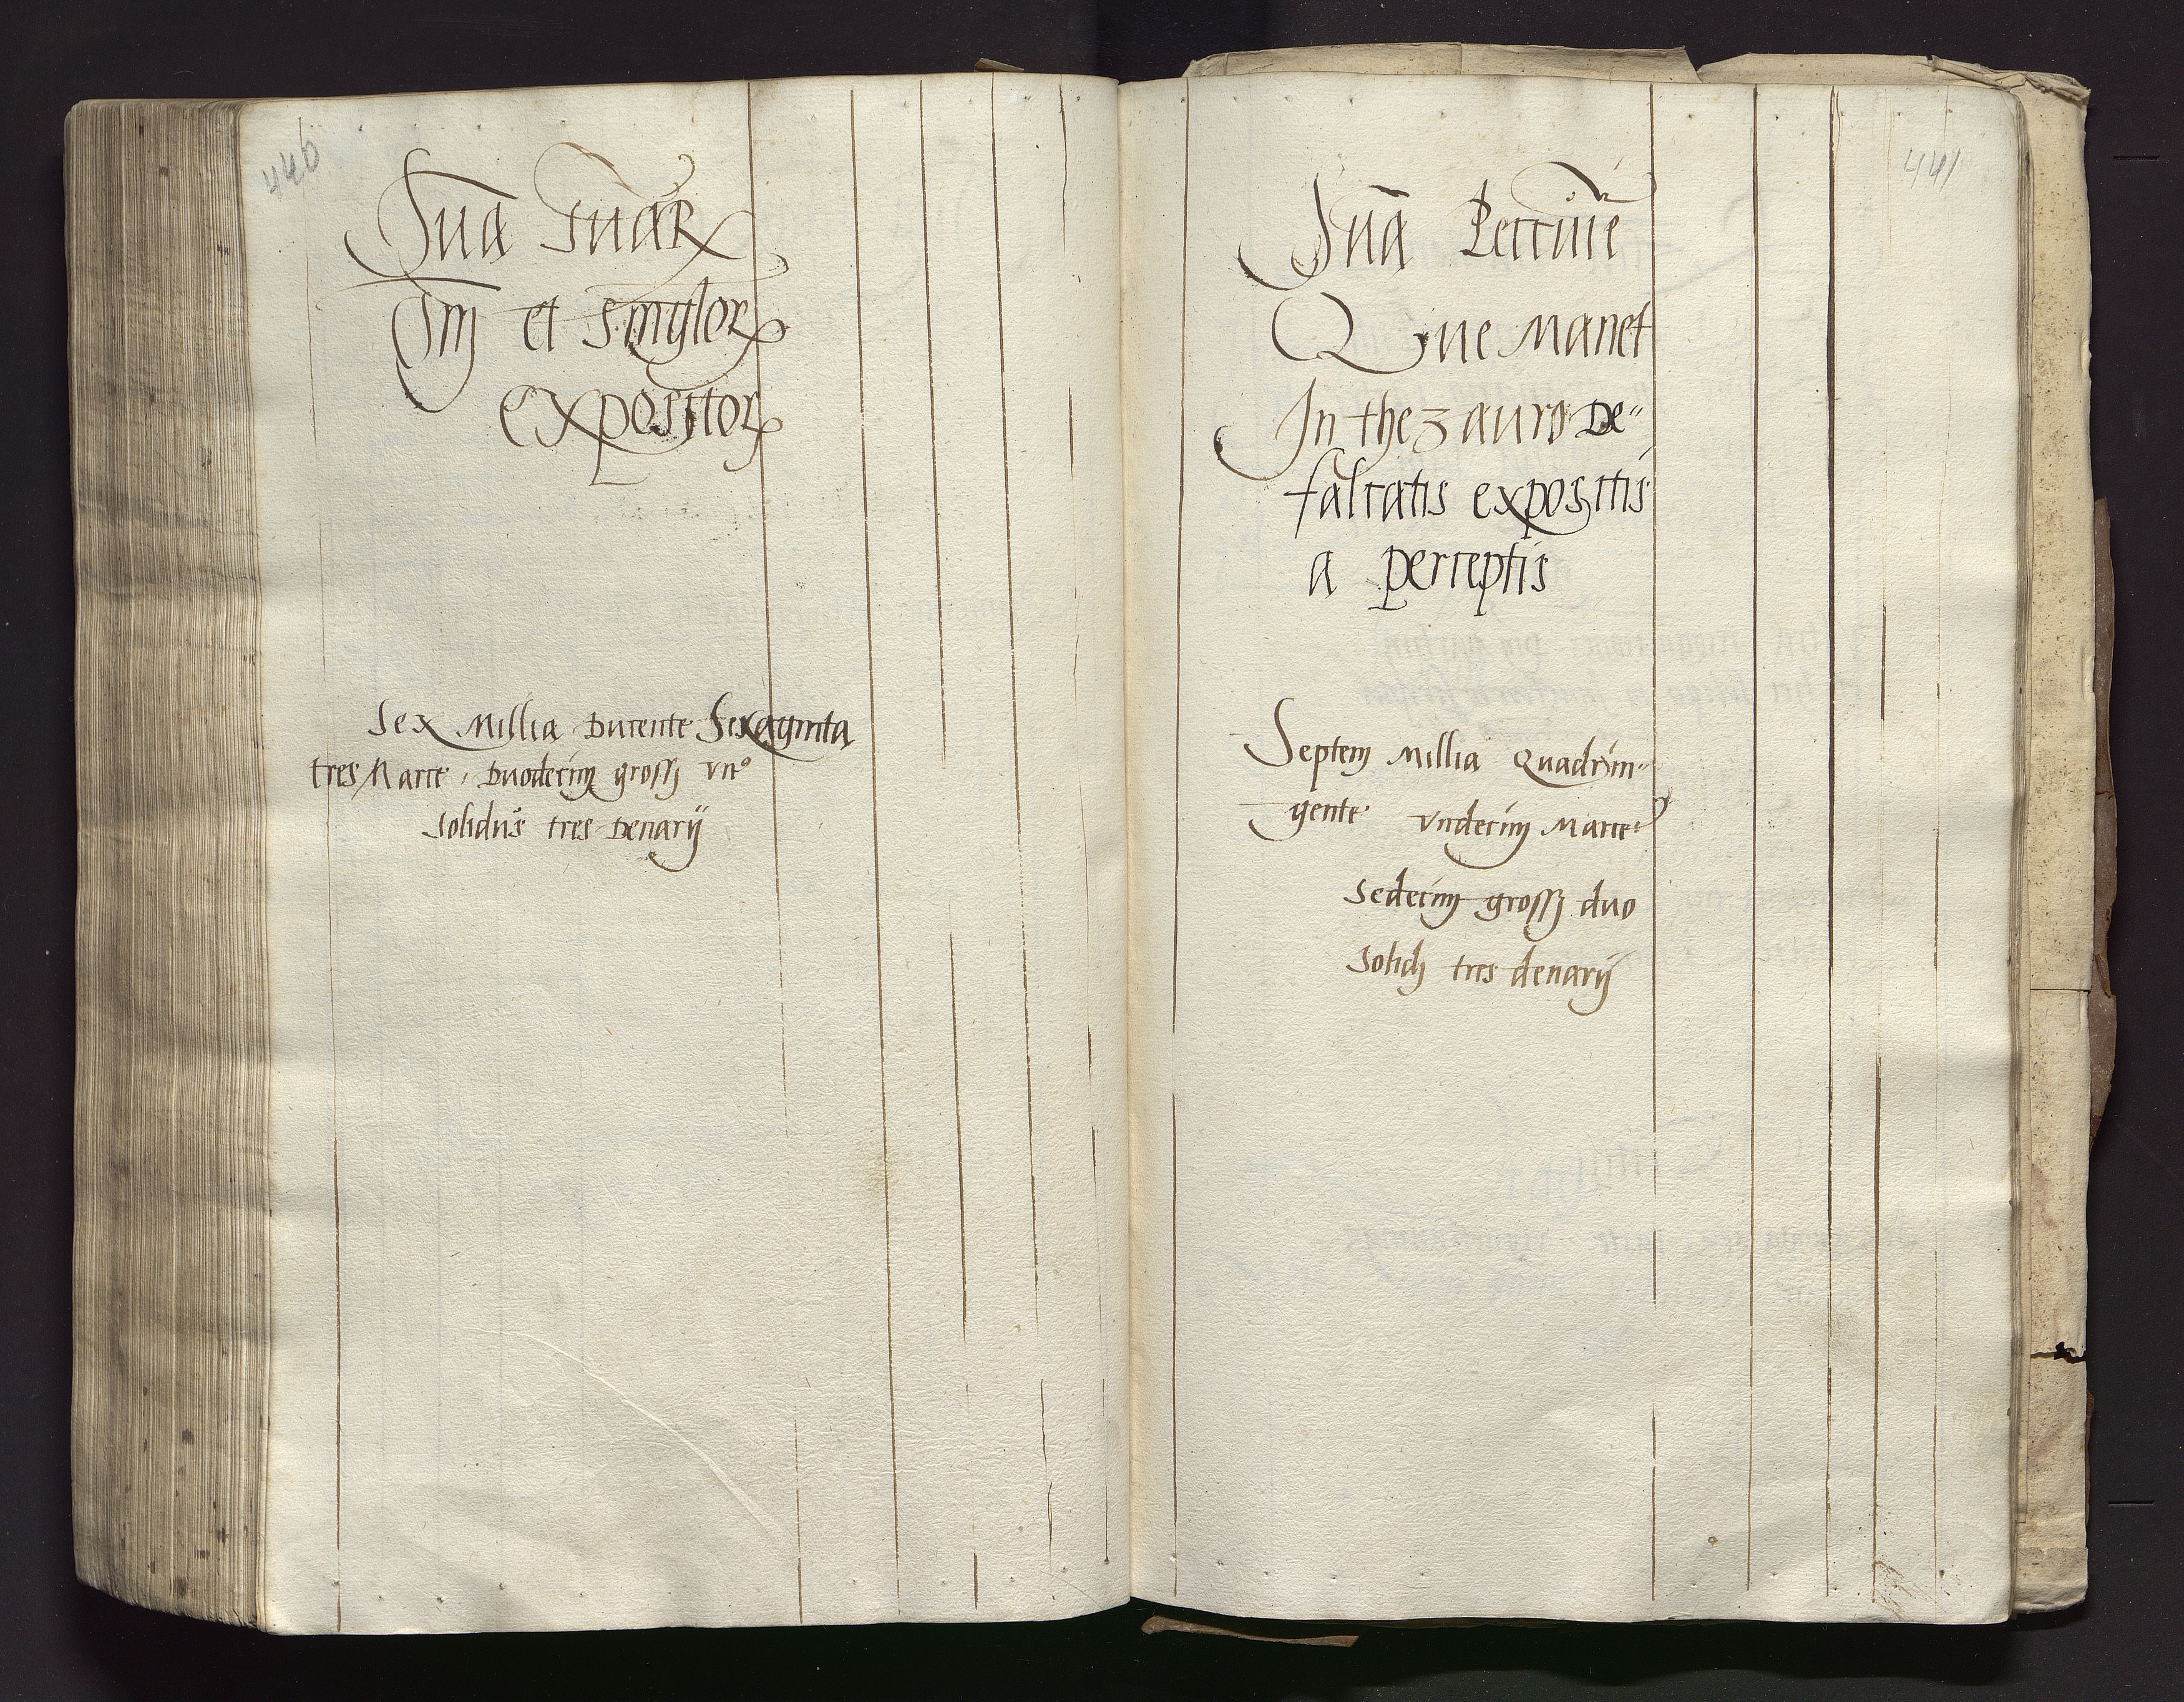 440
Sua̅ Sua̅rꝝ
Om̅ et singlorꝝ
Expositorꝝ
Sex Millia Ducente Sexaginta
tres Marce . Duodecim grossj vn9
Solidus tres Denarij
441
Sua̅ Peccunie̅
Que Manet
In thezauro De=
falcatis expositis
a perceptis
Septem Millia Quadrin=
gente vndecim Marce
Sedecim grossj duo
Solidj tres denarij